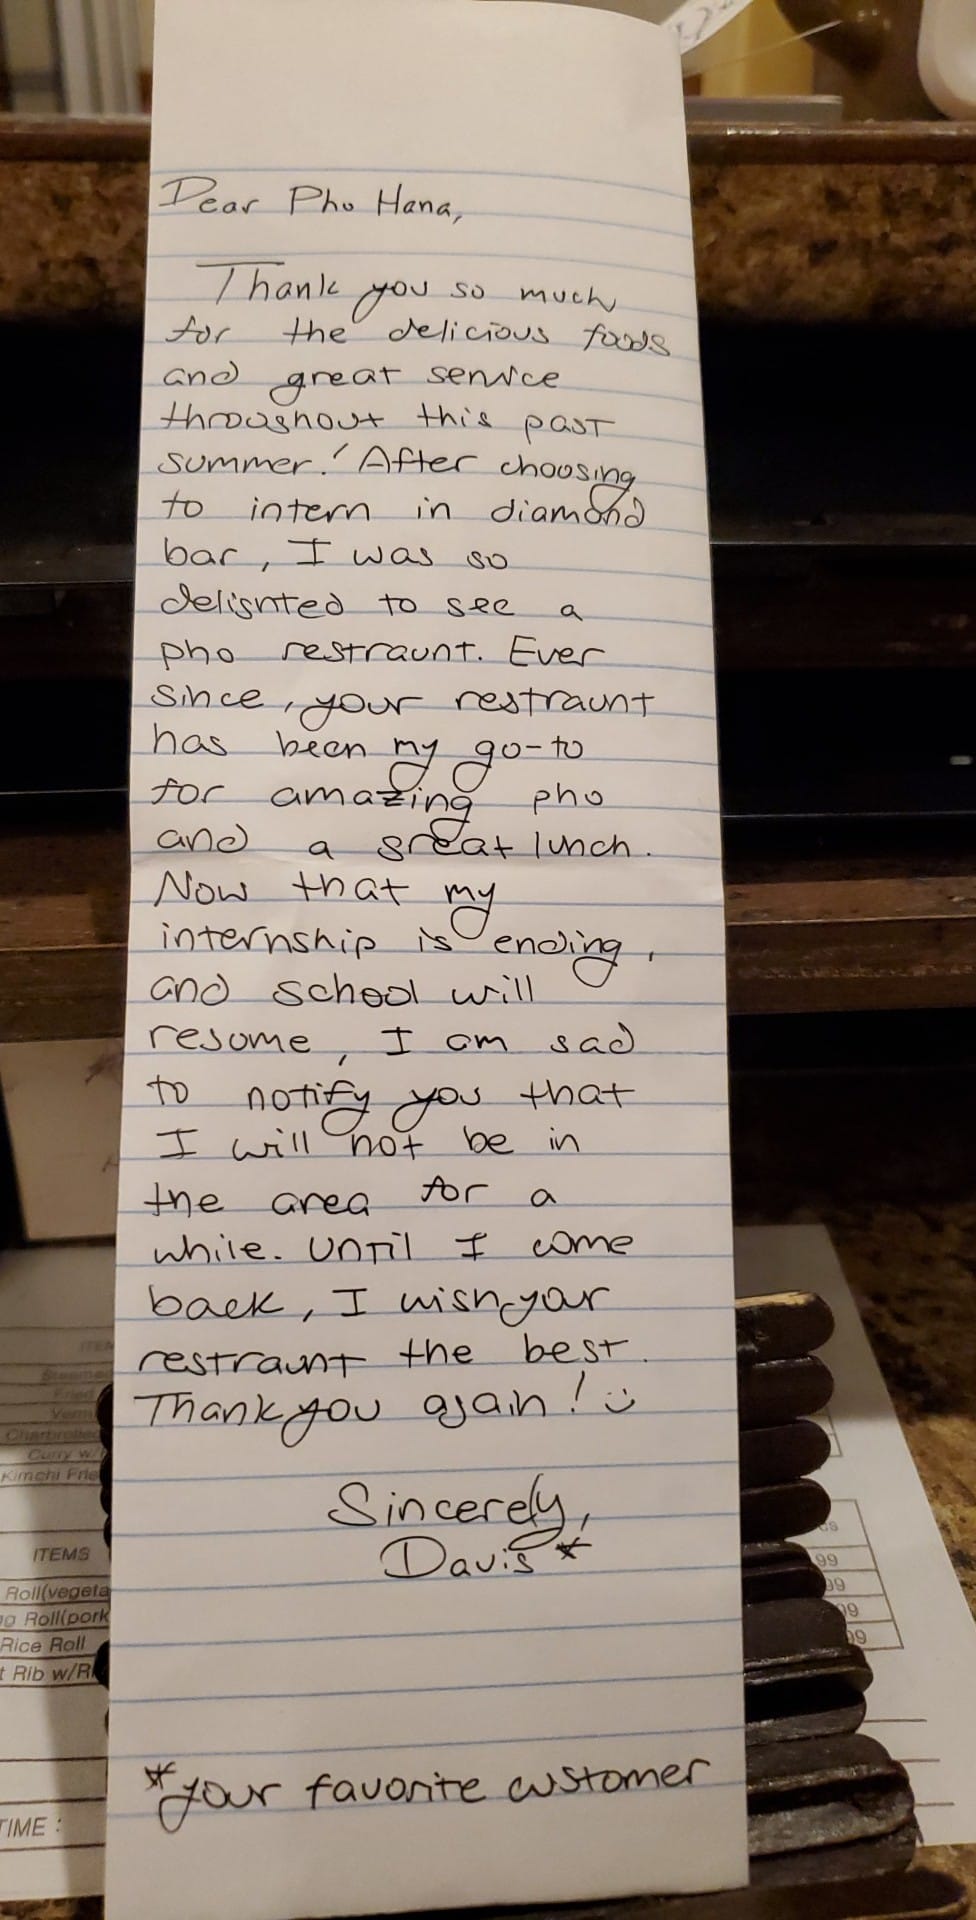 Dear Pho Hana,
Thank you so much
for the delicious foods
and great service
throughout this past
summer! After choosing
to intern in diamond
bar, I was so
delighted to see a
pho restraunt. Ever
since, your restraunt
has been my go-to
for amazing pho
and a great lunch.
Now that my
internship is ending,
and school will
resume, I am sad
to notify you that
I will not be in
the area for a
while. Until I come
back, I wish your
restraunt the best.
Thank you again! :)
Sincerely,
Davis*
*your favorite customer
Fried
Curry w/
Kimchi Frie
ITEMS
Roll(vegeta
Roll(pork
Rice Roll
Rib w/R
TIME :
99
99
99
99